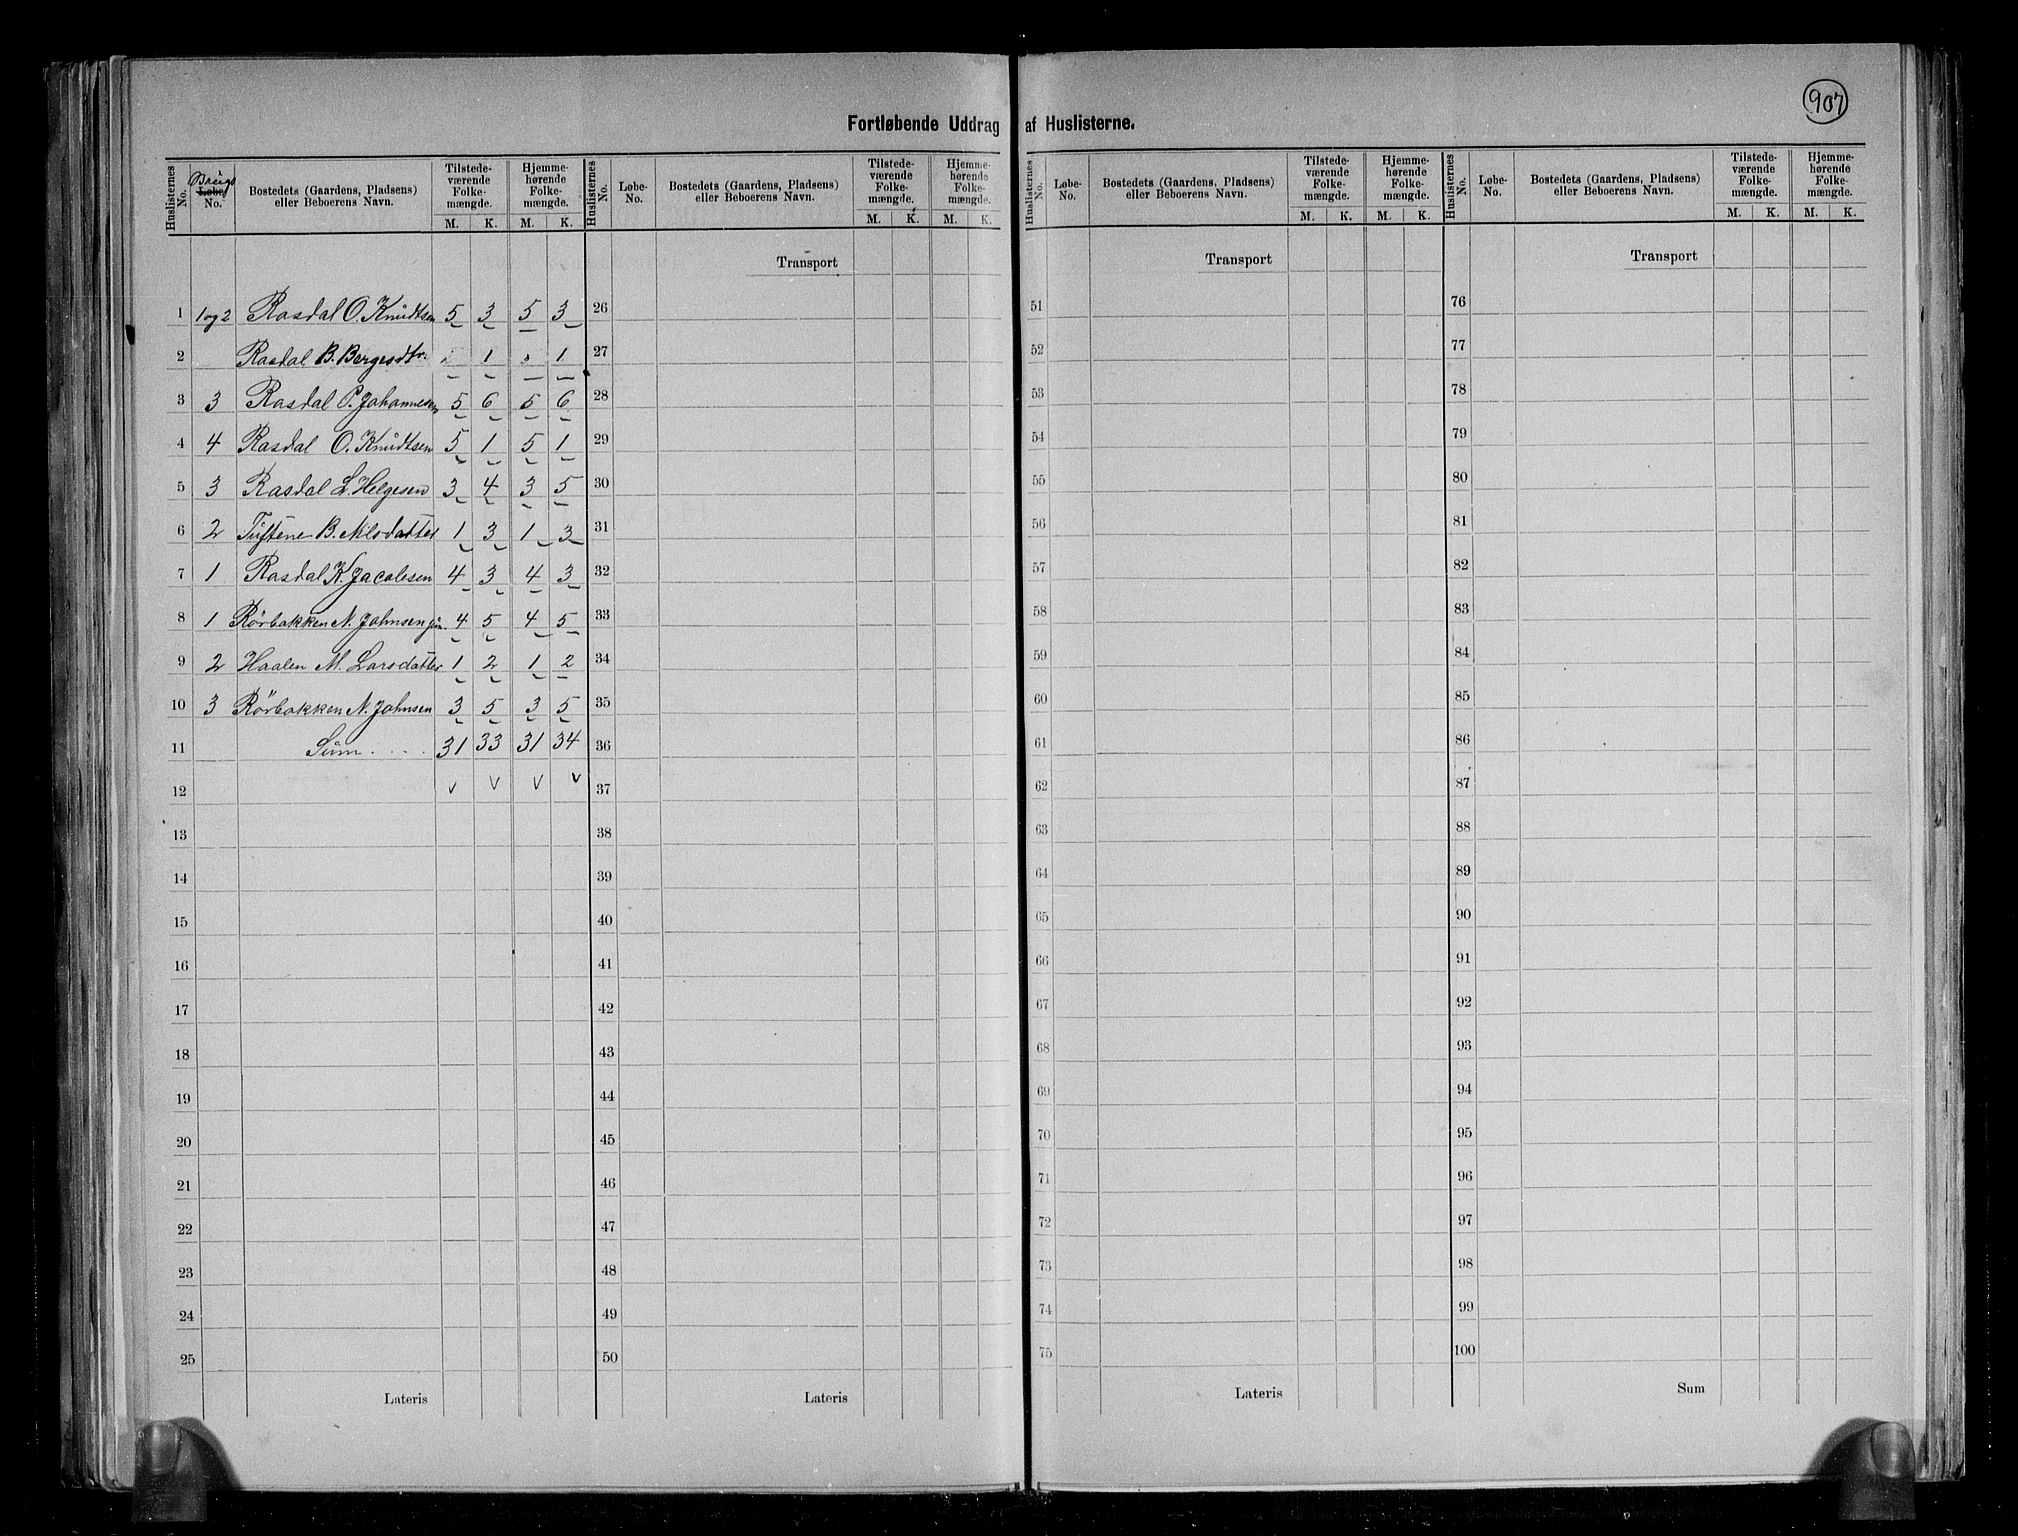 907
Fortløbende Uddrag af Huslisterne.
Huslisternes No. Brugs Løbe- No. Bostedets (Gaardens, Pladsens) eller Beboerens Navn. Tilstede-værende Folke-mængde. M. K. Hjemme-hørende Folke-mængde. M. K.
Huslisternes No. Løbe-No. Bostedets (Gaardens, Pladsens) eller Beboerens Navn. Tilstede-værende Folke-mængde. M. K. Hjemme-hørende Folke-mængde. M. K.
Huslisternes No. Løbe-No. Bostedets (Gaardens, Pladsens) eller Beboerens Navn. Tilstede-værende Folke-mængde. M. K. Hjemme-hørende Folke-mængde. M. K.
Huslisternes No. Løbe-No. Bostedets (Gaardens, Pladsens) eller Beboerens Navn. Tilstede-værende Folke-mængde. M. K. Hjemme-hørende Folke-mængde. M. K.
Transport Transport Transport
1 1og2 Rasdal O. Knudtsen 5 3 5 3 26 51 76
2 Rasdal B. Bergesdtr. " 1 " 1 27 52 77
3 3 Rasdal P. Johannesen 5 6 5 6 28 53 78
4 4 Rasdal O. Knudtsen 5 1 5 1 29 54 79
5 3 Rasdal L. Helgesen 3 4 3 5 30 55 80
6 2 Tuftene B. Nilsdatter 1 3 1 3 31 56 81
7 1 Rasdal K. Jacobsen 4 3 4 3 32 57 82
8 1 Rörbakken N. Johnsen jun. 4 5 4 5 33 58 83
9 2 Haalen M. Larsdatter 1 2 1 2 34 59 84
10 3 Rörbakken N. Johnsen 3 5 3 5 35 60 85
11 Sum .... 31 33 31 34 36 61 86
12 v v v v 37 62 87
13 38 63 88
14 39 64 89
15 40 65 90
16 41 66 91
17 42 67 92
18 43 68 93
19 44 69 94
20 45 70 95
21 46 71 96
22 47 72 97
23 48 73 98
24 49 74 99
25 50 75 100
Lateris Lateris Lateris Sum